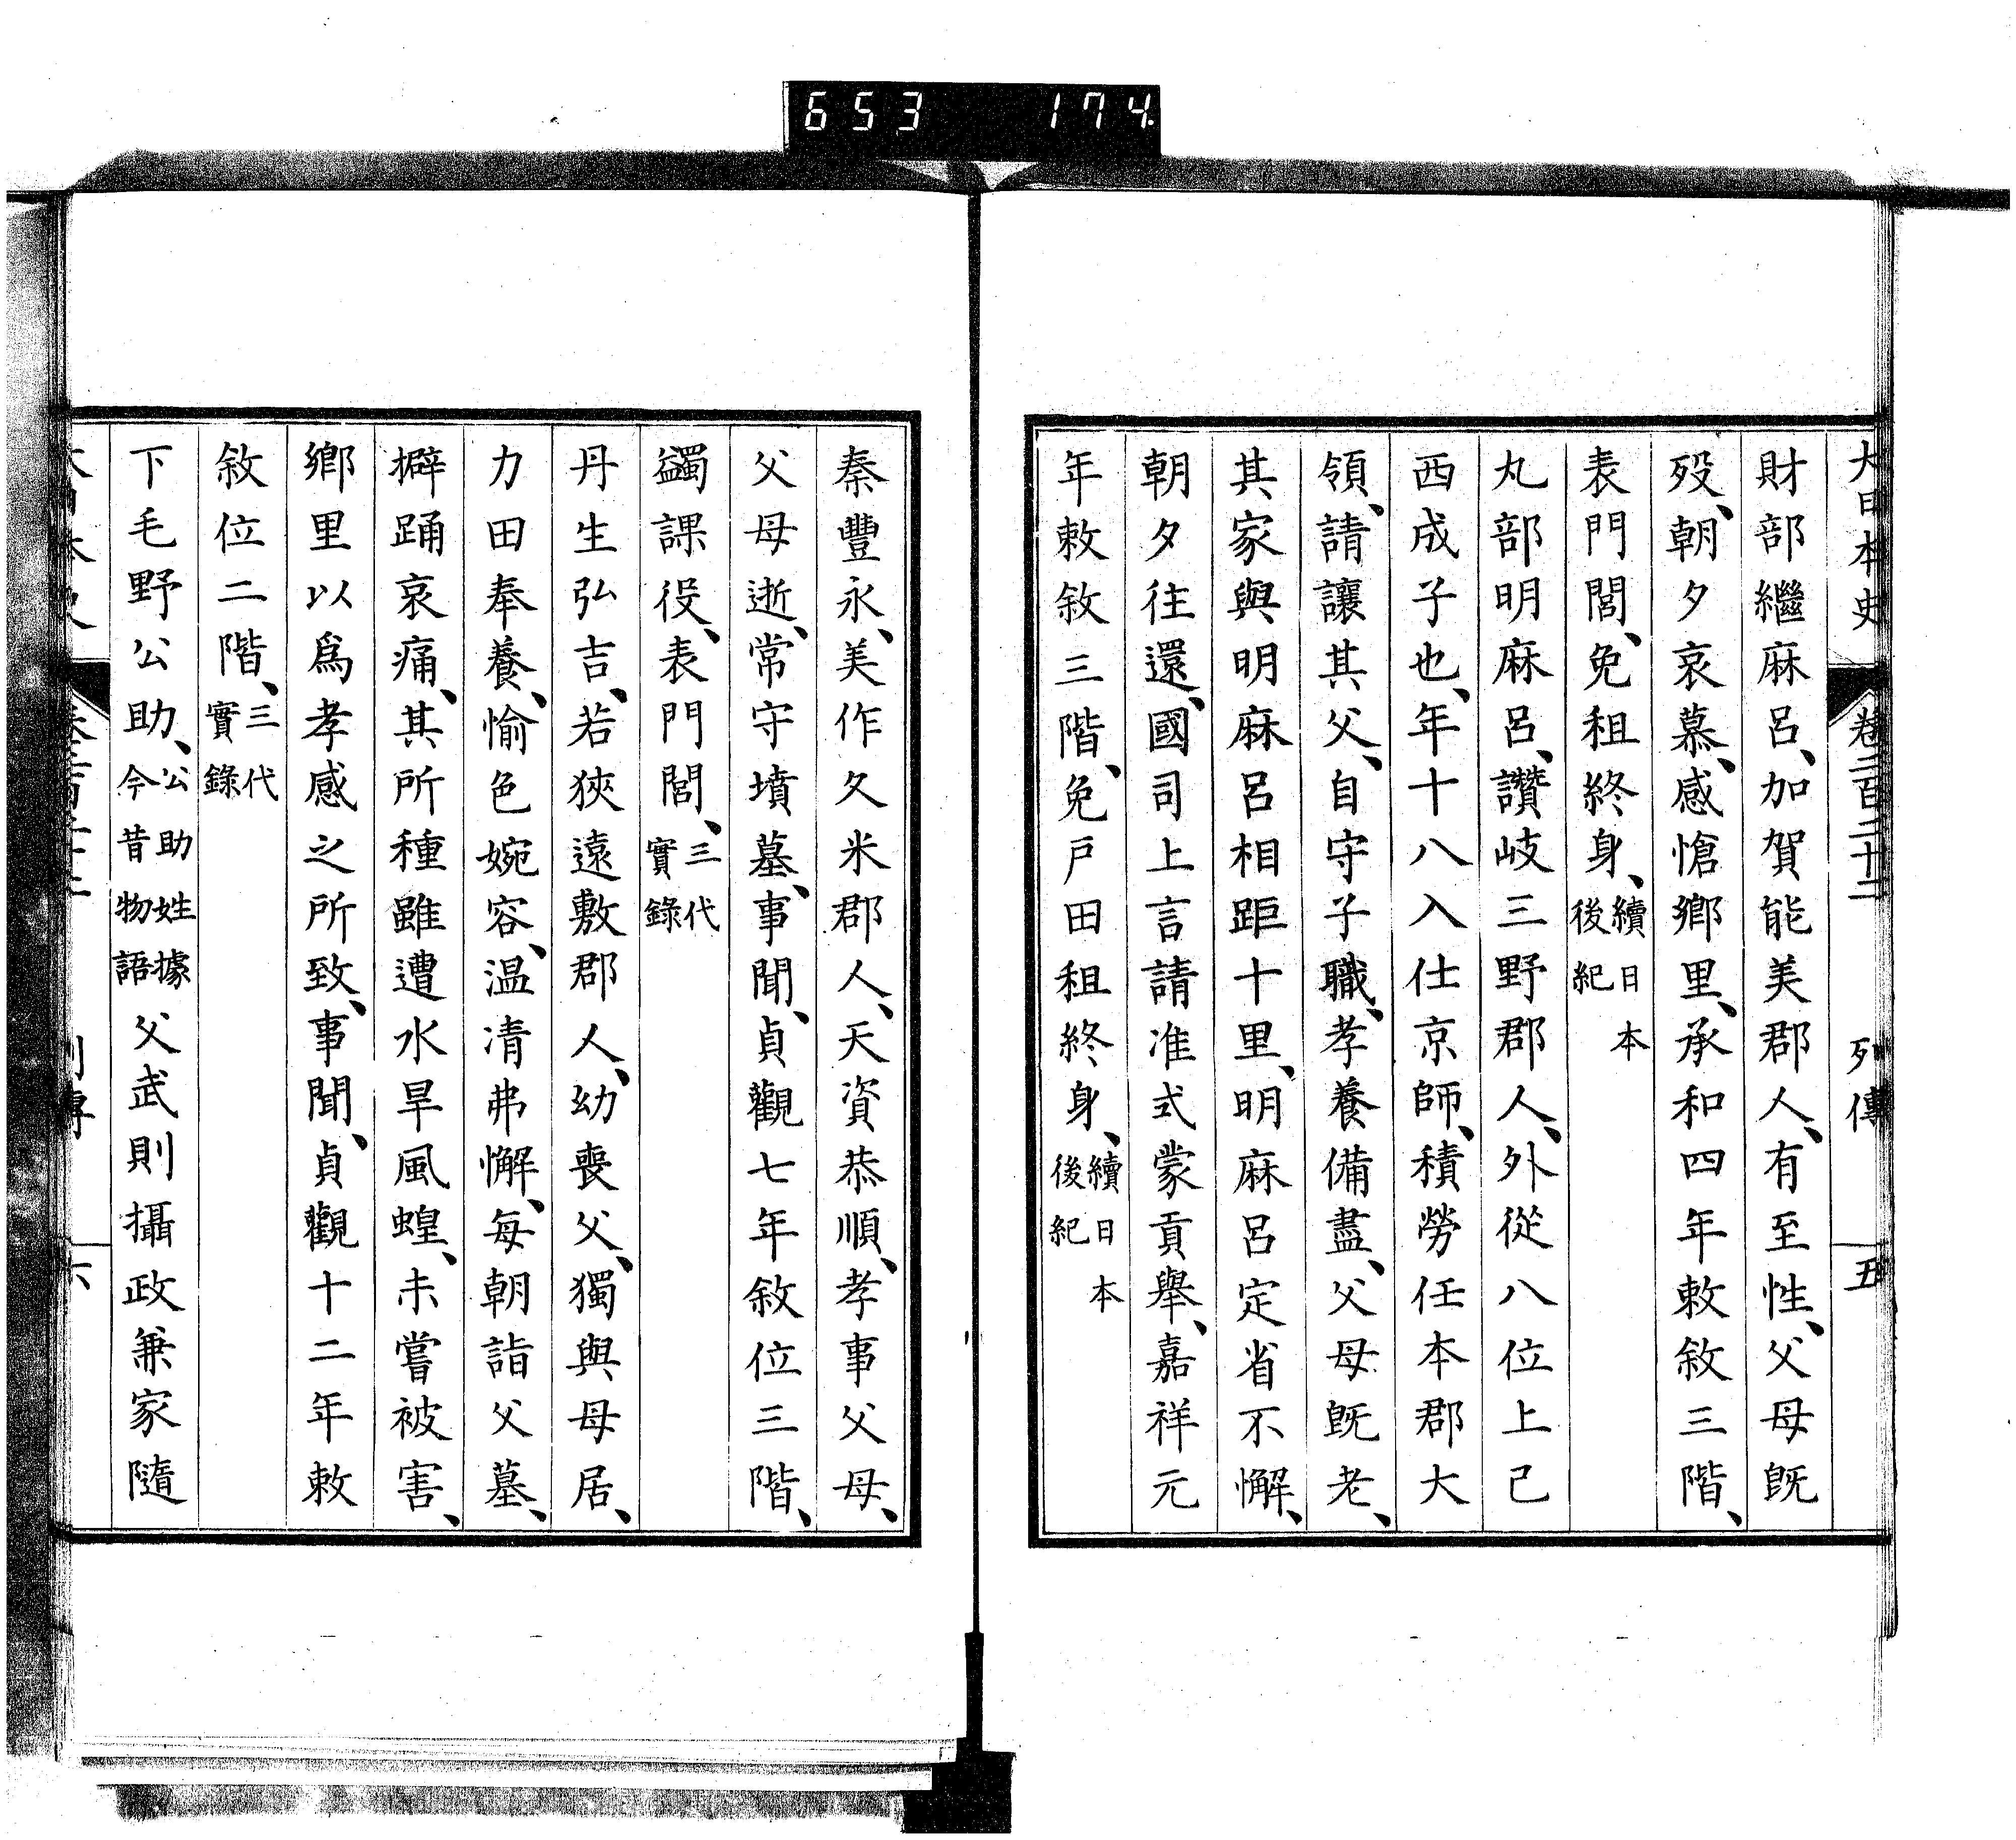 653 174
大日本史 卷二百二十二 列傳 五
財部繼麻呂、加賀能美郡人、有至性、父母既
歿、朝夕哀慕、感愴鄉里、承和四年敕敘三階、
表門閭、免租終身、續日本後紀
丸部明麻呂、讚岐三野郡人、外從八位上己
西成子也、年十八入仕京師、積勞任本郡大
領、請讓其父、自守子職、孝養備盡、父母既老、
其家與明麻呂相距十里、明麻呂定省不懈、
朝夕往還、國司上言請准式蒙貢舉、嘉祥元
年敕敘三階、免戶田租終身、續日本後紀
秦豐永、美作久米郡人、天資恭順、孝事父母、
父母逝、常守墳墓、事聞、貞觀七年敘位三階、
蠲課役、表門閭、三代實錄
丹生弘吉、若狹遠敷郡人、幼喪父、獨與母居、
力田奉養、愉色婉容、溫清弗懈、每朝詣父墓、
擗踊哀痛、其所種雖遭水旱風蝗、未嘗被害、
鄉里以爲孝感之所致、事聞、貞觀十二年敕
敘位二階、三代實錄
下毛野公助、公助姓據今昔物語父武則攝政兼家隨